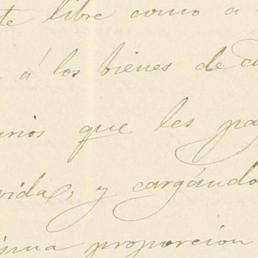 te libre como a
á los bienes de ca
arios que les pa
vida, y cargándo
isma proporcion